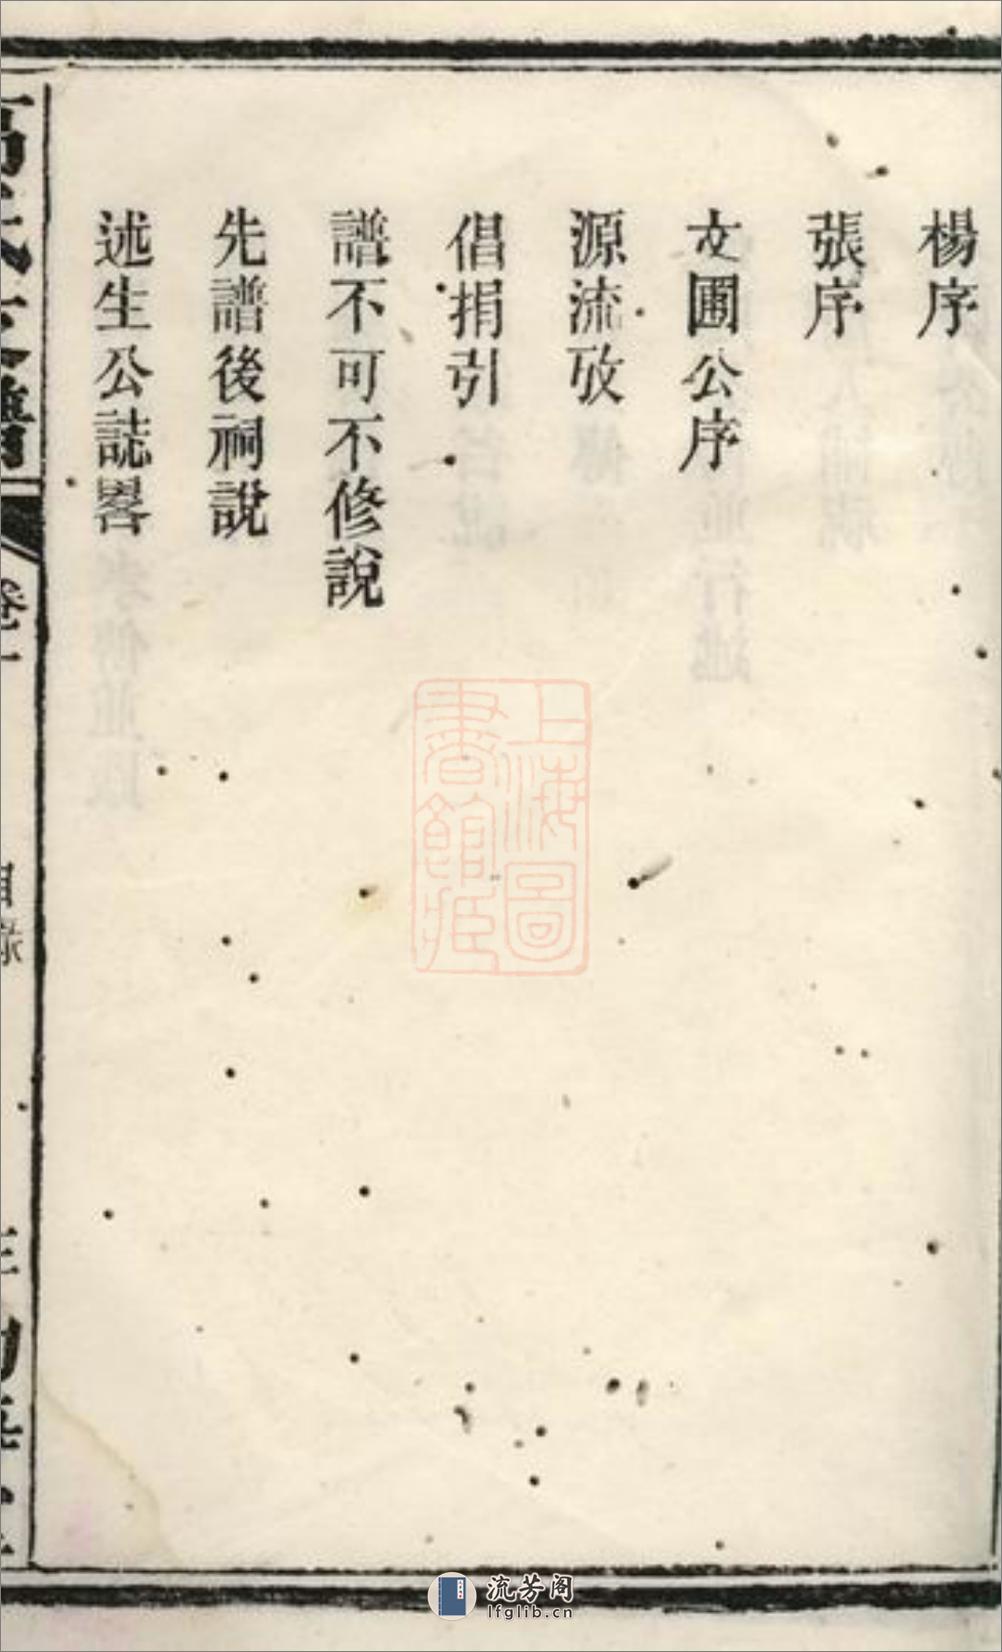 楊序
張序
文圃公序
源流攷
倡捐引
譜不可不修說
先譜後祠說
述生公誌畧
卷一
目錄
上海圖書館藏
流芳阁
lfglib.cn